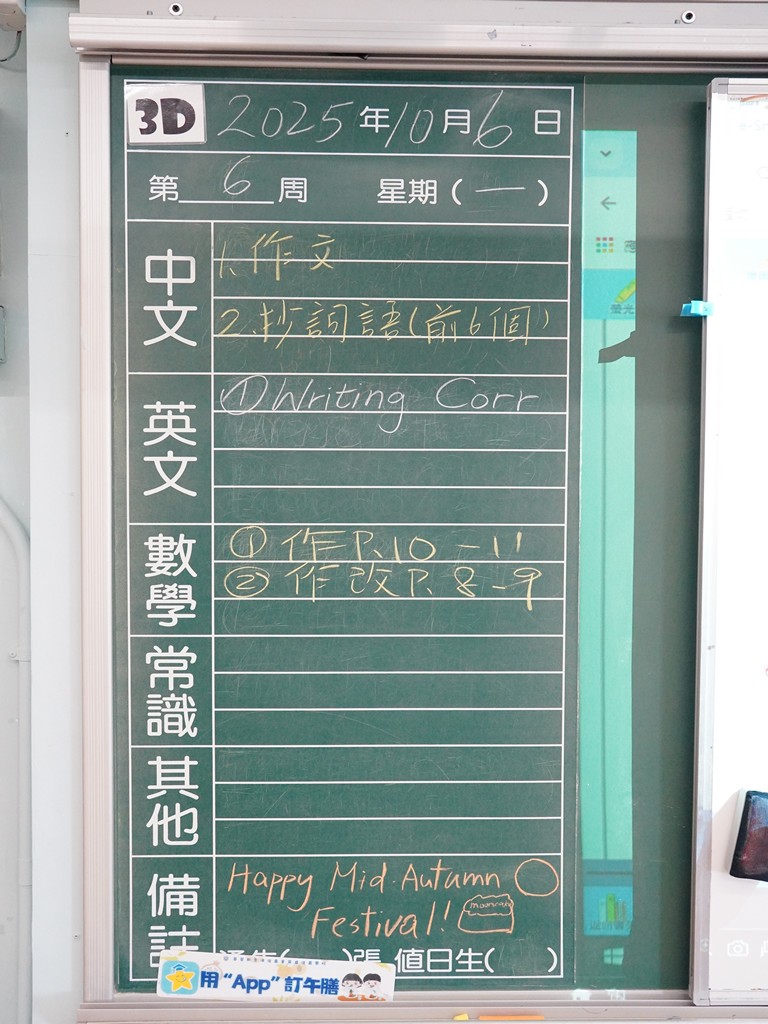 3D 2025年10月6日
第6周 星期(一)
中文
1.作文
2.抄詞語(前6個)
英文
①Writing Corr
數學
①作P.10-11
②作改P.8-9
常識
其他
備註
Happy Mid-Autumn
Festival!
mooncake
通告( )張 值日生( )
用“App”訂午膳